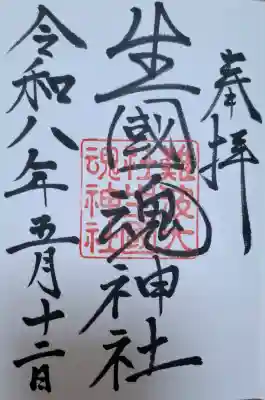 奉拝
生國魂神社
難波大社生國魂神社
令和八年五月十二日